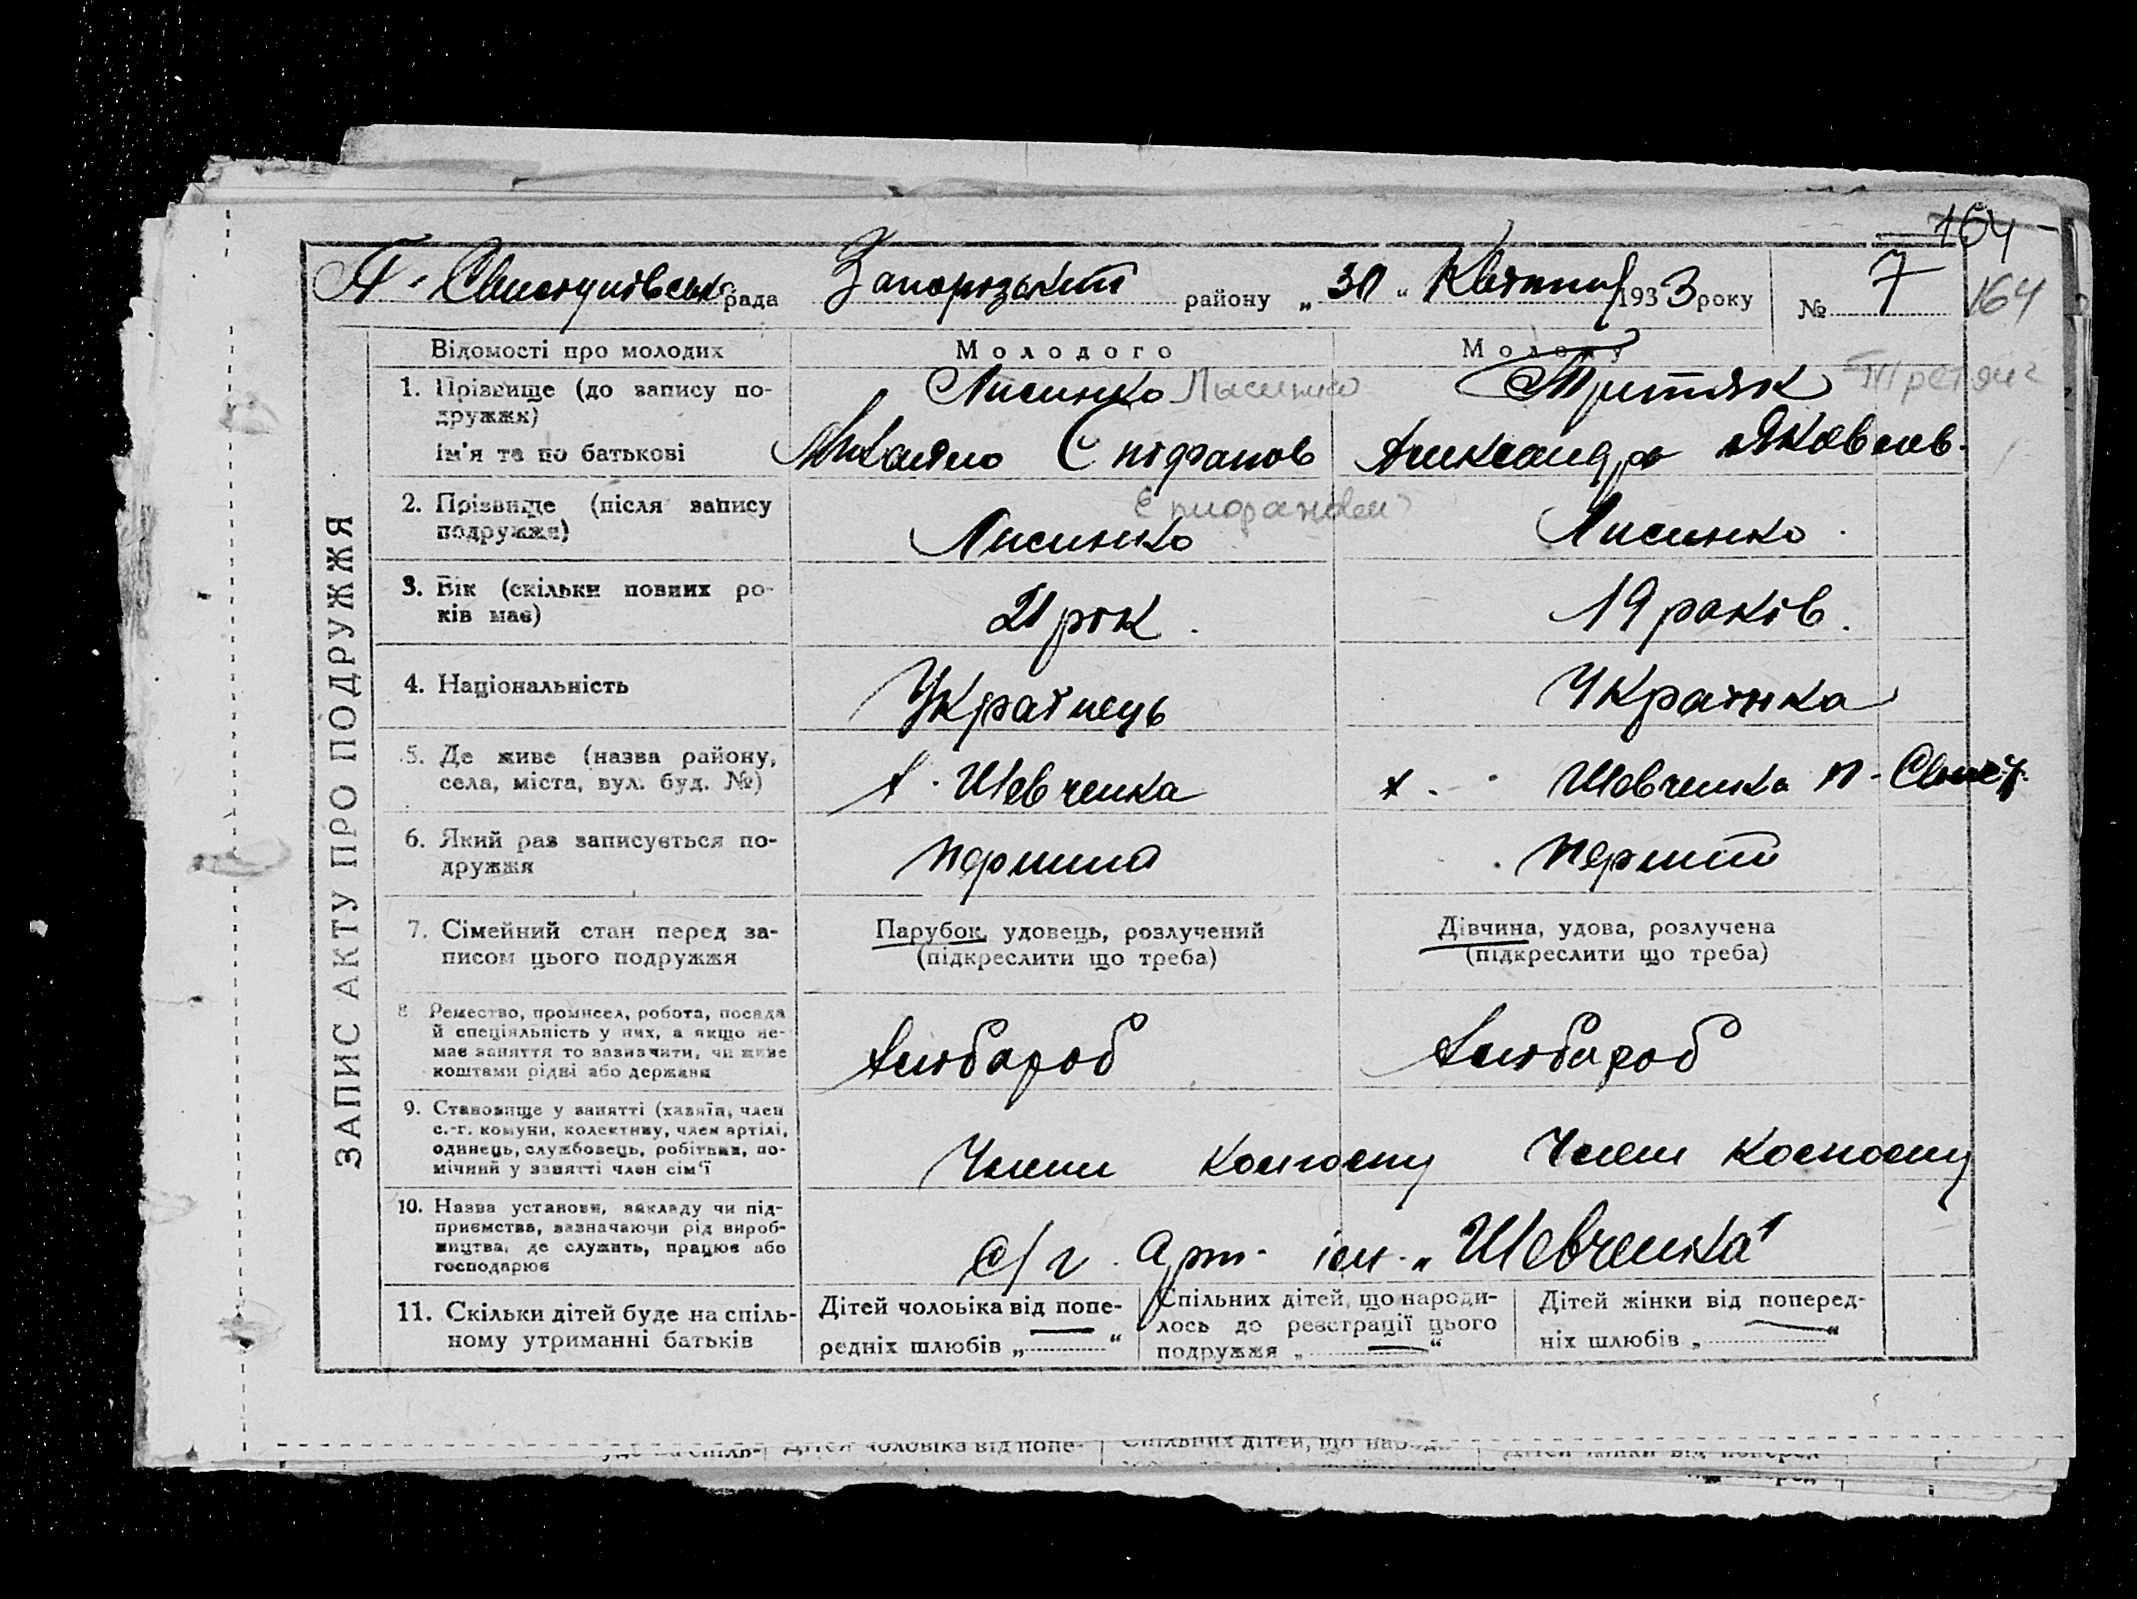 164
П. Свистунівська рада Запорізький району „30“ Квітня 1933 року № 7
164
ЗАПИС АКТУ ПРО ПОДРУЖЖЯ
Відомості про молодих Молодого Молоду
1. Прізвище (до запису по- Лисинко Лысенко Тритяк Третяк
дружжя)
ім'я та по батькові Михайло Єпіфанов Александра Яковлев.
2. Прізвище (після запису Епифанов
подружжя) Лисинко Лисинко.
3. Вік (скільки повних ро- 21 рік. 19 років.
ків має)
4. Національність Українець Українка
5. Де живе (назва району,
села, міста, вул. буд. №) х. Шевченка х. Шевченка П-Свист.
6. Який раз записується по- перший перший
дружжя
7. Сімейний стан перед за- Парубок, удовець, розлучений Дівчина, удова, розлучена
писом цього подружжя (підкреслити що треба) (підкреслити що треба)
8 Ремество, промисел, робота, посада
й спеціяльність у них, а якщо не-
має заняття то зазначити, чи живе Хлібороб Хлібороб
коштами рідні або держави
9. Становище у занятті (хазяїн, член
с.-г. комуни, колективу, член артілі,
одинець, службовець, робітник, по- Член колгоспу Член колгоспу
мічний у занятті член сім'ї
10. Назва установи, закладу чи під-
приємства, зазначаючи рід вироб-
ництва, де служить, працює або с/г. Арт. ім. „Шевченка"
господарює
11. Скільки дітей буде на спіль- Дітей чоловіка від попе- Спільних дітей, що народи- Дітей жінки від поперед-
ному утриманні батьків редніх шлюбів „—“ лось до реєстрації цього ніх шлюбів „—“
подружжя „—“
Дітей чоловіка від попе- Спільних дітей, що народи-